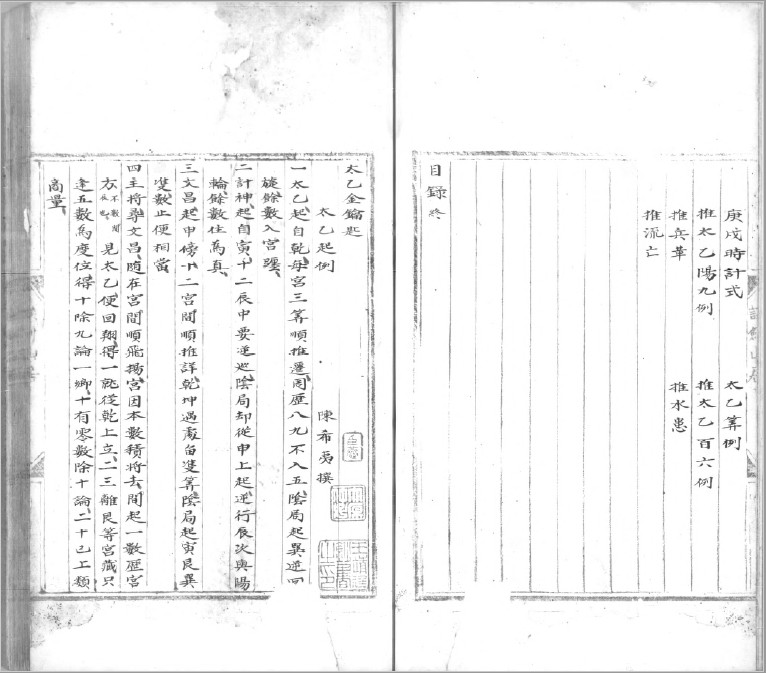 庚戌時計式 太乙筭例
推太乙陽九例 推太乙百六例
推兵革 推水患
推流亡
目録終
太乙金鑰匙
太乙起例 陳希夷撰
一太乙起自乾每宮三筭順推遷周歴八九不入五陰局起巽逆回
旋餘數入宮躔
二計神起自寅十二辰中要逆巡陰局却從申上起逆行辰次與陽
輪餘數住為真
三文昌起申傍十二宮間順推詳乾坤遇處留雙筭陰局起寅艮巽
雙數止便相當
四主將尋文昌随在宮間順飛揚宮因本數積將去間起一數歴宮
方不數間辰 見太乙便回翔得一就從乾上立二三離艮等宮藏只
逢五數為度位得十除九論一鄉十有零數除十論二十已上類
商量